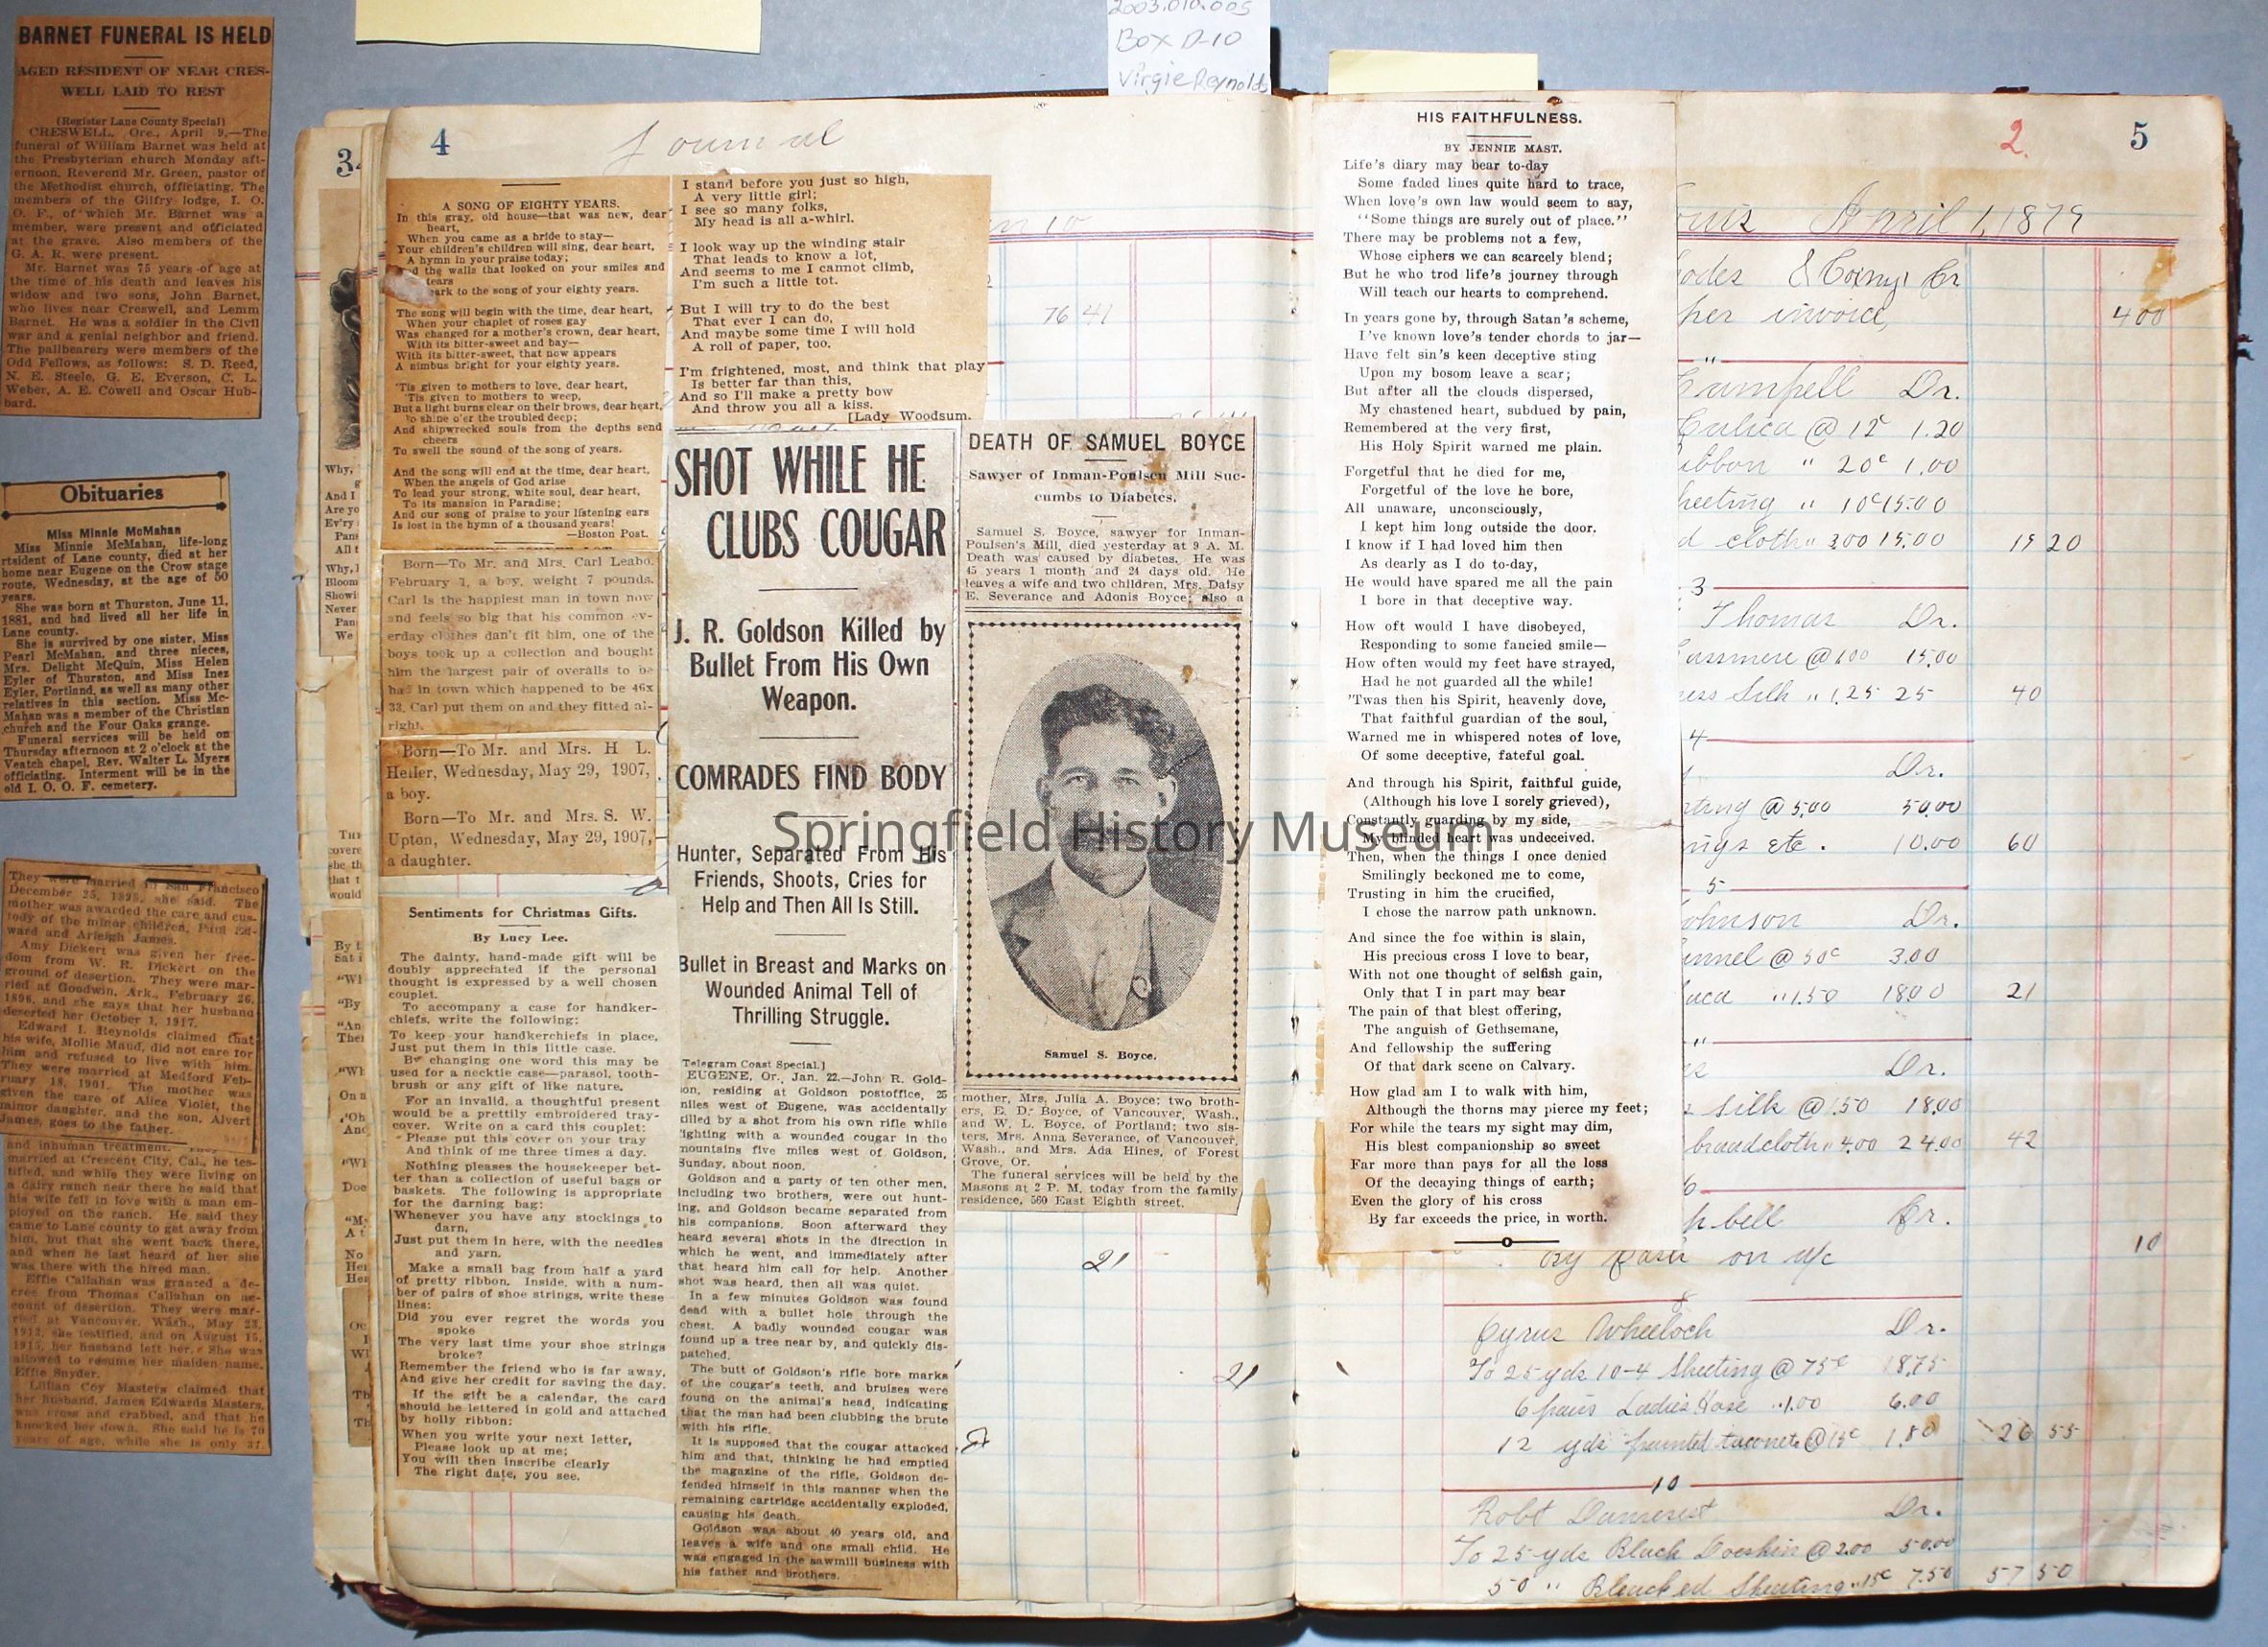 2003.010.005
Box D-10
Virgie Reynolds
BARNET FUNERAL IS HELD
AGED RESIDENT OF NEAR CRES-
WELL LAID TO REST
(Register Lane County Special)
CRESWELL, Ore., April 9,—The
funeral of William Barnet was held at
the Presbyterian church Monday aft-
ernoon. Reverend Mr. Green, pastor of
the Methodist church, officiating. The
members of the Gilfry lodge, I. O.
O. F., of which Mr. Barnet was a
member, were present and officiated
at the grave. Also members of the
G. A. R. were present.
Mr. Barnet was 75 years of age at
the time of his death and leaves his
widow and two sons, John Barnet,
who lives near Creswell, and Lemm
Barnet. He was a soldier in the Civil
war and a genial neighbor and friend.
The pallbearers were members of the
Odd Fellows, as follows: S. D. Reed,
N. E. Steele, G. E. Everson, C. L.
Weber, A. E. Cowell and Oscar Hub-
bard.
Obituaries
Miss Minnie McMahan
Miss Minnie McMahan, life-long
rtsident of Lane county, died at her
home near Eugene on the Crow stage
route, Wednesday, at the age of 50
years.
She was born at Thurston, June 11,
1881, and had lived all her life in
Lane county.
She is survived by one sister, Miss
Pearl McMahan, and three nieces,
Mrs. Delight McQuin, Miss Helen
Eyler of Thurston, and Miss Inez
Eyler, Portland, as well as many other
relatives in this section. Miss Mc-
Mahan was a member of the Christian
church and the Four Oaks grange.
Funeral services will be held on
Thursday afternoon at 2 o'clock at the
Veatch chapel, Rev. Walter L. Myers
officiating. Interment will be in the
old I. O. O. F. cemetery.
They were married in San Francisco
December 25, 1895, she said. The
mother was awarded the care and cus-
tody of the minor children, Paul Ed-
ward and Arleigh James.
Amy Dickert was given her free-
dom from W. R. Dickert on the
ground of desertion. They were mar-
ried at Goodwin, Ark., February 26,
1896, and she says that her husband
deserted her October 1, 1917.
Edward I. Reynolds claimed that
his wife, Mollie Maud, did not care for
him and refused to live with him.
They were married at Medford Feb-
ruary 18, 1901. The mother was
given the care of Alice Violet, the
minor daughter, and the son, Alvert
James, goes to the father.
and inhuman treatment. They
married at Crescent City, Cal., he tes-
tified, and while they were living on
a dairy ranch near there he said that
his wife fell in love with a man em-
ployed on the ranch. He said they
came to Lane county to get away from
him, but that she went back there,
and when he last heard of her she
was there with the hired man.
Effie Callahan was granted a de-
cree from Thomas Callahan on ac-
count of desertion. They were mar-
ried at Vancouver, Wash., May 23,
1912, she testified, and on August 15,
1915, her husband left her. She was
allowed to resume her maiden name,
Effie Snyder.
Lillian Coy Masters claimed that
her husband, James Edwards Masters,
was cross and crabbed, and that he
knocked her down. She said he is 70
years of age, while she is only 37.
34
Why,
And I
Are yo
Ev'ry
Pan
All t
Why, I
Bloom
Showi
Never
Pan
We
4
Journal
A SONG OF EIGHTY YEARS.
In this gray, old house—that was new, dear
heart,
When you came as a bride to stay—
Your children's children will sing, dear heart,
A hymn in your praise today;
nd the walls that looked on your smiles and
tears
ark to the song of your eighty years.
The song will begin with the time, dear heart,
When your chaplet of roses gay
Was changed for a mother's crown, dear heart,
With its bitter-sweet and bay—
With its bitter-sweet, that now appears
A nimbus bright for your eighty years.
'Tis given to mothers to love, dear heart,
'Tis given to mothers to weep,
But a light burns clear on their brows, dear heart,
To shine o'er the troubled deep;
And shipwrecked souls from the depths send
cheers
To swell the sound of the song of years.
And the song will end at the time, dear heart,
When the angels of God arise
To lead your strong, white soul, dear heart,
To its mansion in Paradise;
And our song of praise to your listening ears
Is lost in the hymn of a thousand years!
—Boston Post.
Born—To Mr. and Mrs. Carl Leabo.
February 1, a boy, weight 7 pounds.
Carl is the happiest man in town now
and feels so big that his common ev-
erday clothes dan't fit him, one of the
boys took up a collection and bought
him the largest pair of overalls to be
had in town which happened to be 46x
33. Carl put them on and they fitted al-
right.
Born—To Mr. and Mrs. H L.
Heiler, Wednesday, May 29, 1907,
a boy.
Born—To Mr. and Mrs. S. W.
Upton, Wednesday, May 29, 1907,
a daughter.
Sentiments for Christmas Gifts.
By Lucy Lee.
The dainty, hand-made gift will be
doubly appreciated if the personal
thought is expressed by a well chosen
couplet.
To accompany a case for handker-
chiefs, write the following:
To keep your handkerchiefs in place,
Just put them in this little case.
By changing one word this may be
used for a necktie case—parasol, tooth-
brush or any gift of like nature.
For an invalid, a thoughtful present
would be a prettily embroidered tray-
cover. Write on a card this couplet:
Please put this cover on your tray
And think of me three times a day.
Nothing pleases the housekeeper bet-
ter than a collection of useful bags or
baskets. The following is appropriate
for the darning bag:
Whenever you have any stockings to
darn,
Just put them in here, with the needles
and yarn.
Make a small bag from half a yard
of pretty ribbon. Inside, with a num-
ber of pairs of shoe strings, write these
lines:
Did you ever regret the words you
spoke
The very last time your shoe strings
broke?
Remember the friend who is far away,
And give her credit for saving the day.
If the gift be a calendar, the card
should be lettered in gold and attached
by holly ribbon:
When you write your next letter,
Please look up at me;
You will then inscribe clearly
The right date, you see.
I stand before you just so high,
A very little girl;
I see so many folks,
My head is all a-whirl.
I look way up the winding stair
That leads to know a lot,
And seems to me I cannot climb,
I'm such a little tot.
But I will try to do the best
That ever I can do,
And maybe some time I will hold
A roll of paper, too.
I'm frightened, most, and think that play
Is better far than this,
And so I'll make a pretty bow
And throw you all a kiss.
[Lady Woodsum.
76 41
SHOT WHILE HE
CLUBS COUGAR
J. R. Goldson Killed by
Bullet From His Own
Weapon.
COMRADES FIND BODY
Hunter, Separated From His
Friends, Shoots, Cries for
Help and Then All Is Still.
Bullet in Breast and Marks on
Wounded Animal Tell of
Thrilling Struggle.
Telegram Coast Special.]
EUGENE, Or., Jan. 22.—John R. Gold-
son, residing at Goldson postoffice, 25
miles west of Eugene, was accidentally
killed by a shot from his own rifle while
fighting with a wounded cougar in the
mountains five miles west of Goldson,
Sunday, about noon.
Goldson and a party of ten other men,
including two brothers, were out hunt-
ing, and Goldson became separated from
his companions. Soon afterward they
heard several shots in the direction in
which he went, and immediately after
that heard him call for help. Another
shot was heard, then all was quiet.
In a few minutes Goldson was found
dead with a bullet hole through the
chest. A badly wounded cougar was
found up a tree near by, and quickly dis-
patched.
The butt of Goldson's rifle bore marks
of the cougar's teeth, and bruises were
found on the animal's head, indicating
that the man had been clubbing the brute
with his rifle.
It is supposed that the cougar attacked
him and that, thinking he had emptied
the magazine of the rifle, Goldson de-
fended himself in this manner when the
remaining cartridge accidentally exploded,
causing his death.
Goldson was about 40 years old, and
leaves a wife and one small child. He
was engaged in the sawmill business with
his father and brothers.
DEATH OF SAMUEL BOYCE
Sawyer of Inman-Poulsen Mill Suc-
cumbs to Diabetes.
Samuel S. Boyce, sawyer for Inman-
Poulsen's Mill, died yesterday at 9 A. M.
Death was caused by diabetes. He was
45 years 1 month and 24 days old. He
leaves a wife and two children, Mrs. Daisy
E. Severance and Adonis Boyce; also a
Samuel S. Boyce.
mother, Mrs. Julia A. Boyce; two broth-
ers, E. D. Boyce, of Vancouver, Wash.,
and W. L. Boyce, of Portland; two sis-
ters, Mrs. Anna Severance, of Vancouver,
Wash., and Mrs. Ada Hines, of Forest
Grove, Or.
The funeral services will be held by the
Masons at 2 P. M. today from the family
residence, 560 East Eighth street.
21
21
Springfield History Museum
HIS FAITHFULNESS.
BY JENNIE MAST.
Life's diary may bear to-day
Some faded lines quite hard to trace,
When love's own law would seem to say,
"Some things are surely out of place."
There may be problems not a few,
Whose ciphers we can scarcely blend;
But he who trod life's journey through
Will teach our hearts to comprehend.
In years gone by, through Satan's scheme,
I've known love's tender chords to jar—
Have felt sin's keen deceptive sting
Upon my bosom leave a scar;
But after all the clouds dispersed,
My chastened heart, subdued by pain,
Remembered at the very first,
His Holy Spirit warned me plain.
Forgetful that he died for me,
Forgetful of the love he bore,
All unaware, unconsciously,
I kept him long outside the door.
I know if I had loved him then
As dearly as I do to-day,
He would have spared me all the pain
I bore in that deceptive way.
How oft would I have disobeyed,
Responding to some fancied smile—
How often would my feet have strayed,
Had he not guarded all the while!
'Twas then his Spirit, heavenly dove,
That faithful guardian of the soul,
Warned me in whispered notes of love,
Of some deceptive, fateful goal.
And through his Spirit, faithful guide,
(Although his love I sorely grieved),
Constantly guarding by my side,
My blinded heart was undeceived.
Then, when the things I once denied
Smilingly beckoned me to come,
Trusting in him the crucified,
I chose the narrow path unknown.
And since the foe within is slain,
His precious cross I love to bear,
With not one thought of selfish gain,
Only that I in part may bear
The pain of that blest offering,
The anguish of Gethsemane,
And fellowship the suffering
Of that dark scene on Calvary.
How glad am I to walk with him,
Although the thorns may pierce my feet;
For while the tears my sight may dim,
His blest companionship so sweet
Far more than pays for all the loss
Of the decaying things of earth;
Even the glory of his cross
By far exceeds the price, in worth.
2.
5
April 1, 1879
& Comy Cr
per invoice 400
Campell Dr.
Calico @ 12c 1.20
ibbon " 20c 1.00
heeting " 10c 15.00
d cloth " 3.00 15.00 19 20
3
Thomas Dr.
assmere @ 1.00 15.00
ess Silk " 1.25 25 40
4
Dr.
rting @ 5.00 50.00
ngs etc. 10.00 60
5
ohnson Dr.
annel @ 50c 3.00
aca " 1.50 18.00 21
"
Dr.
silk @ 1.50 18.00
broadcloth " 4.00 24.00 42
6
pbell Cr.
By cash on a/c 10
8
Cyrus Wheeloch Dr.
To 25 yds 10-4 Sheeting @ 75c 18.75
6 pairs Ladies Hose " 1.00 6.00
12 yds printed @ 15c 1.80 26 55
10
Robt Damerest Dr.
To 25 yds Black Doeskin @ 2.00 50.00
50 " Bleached Sheating " 15c 7.50 57 50